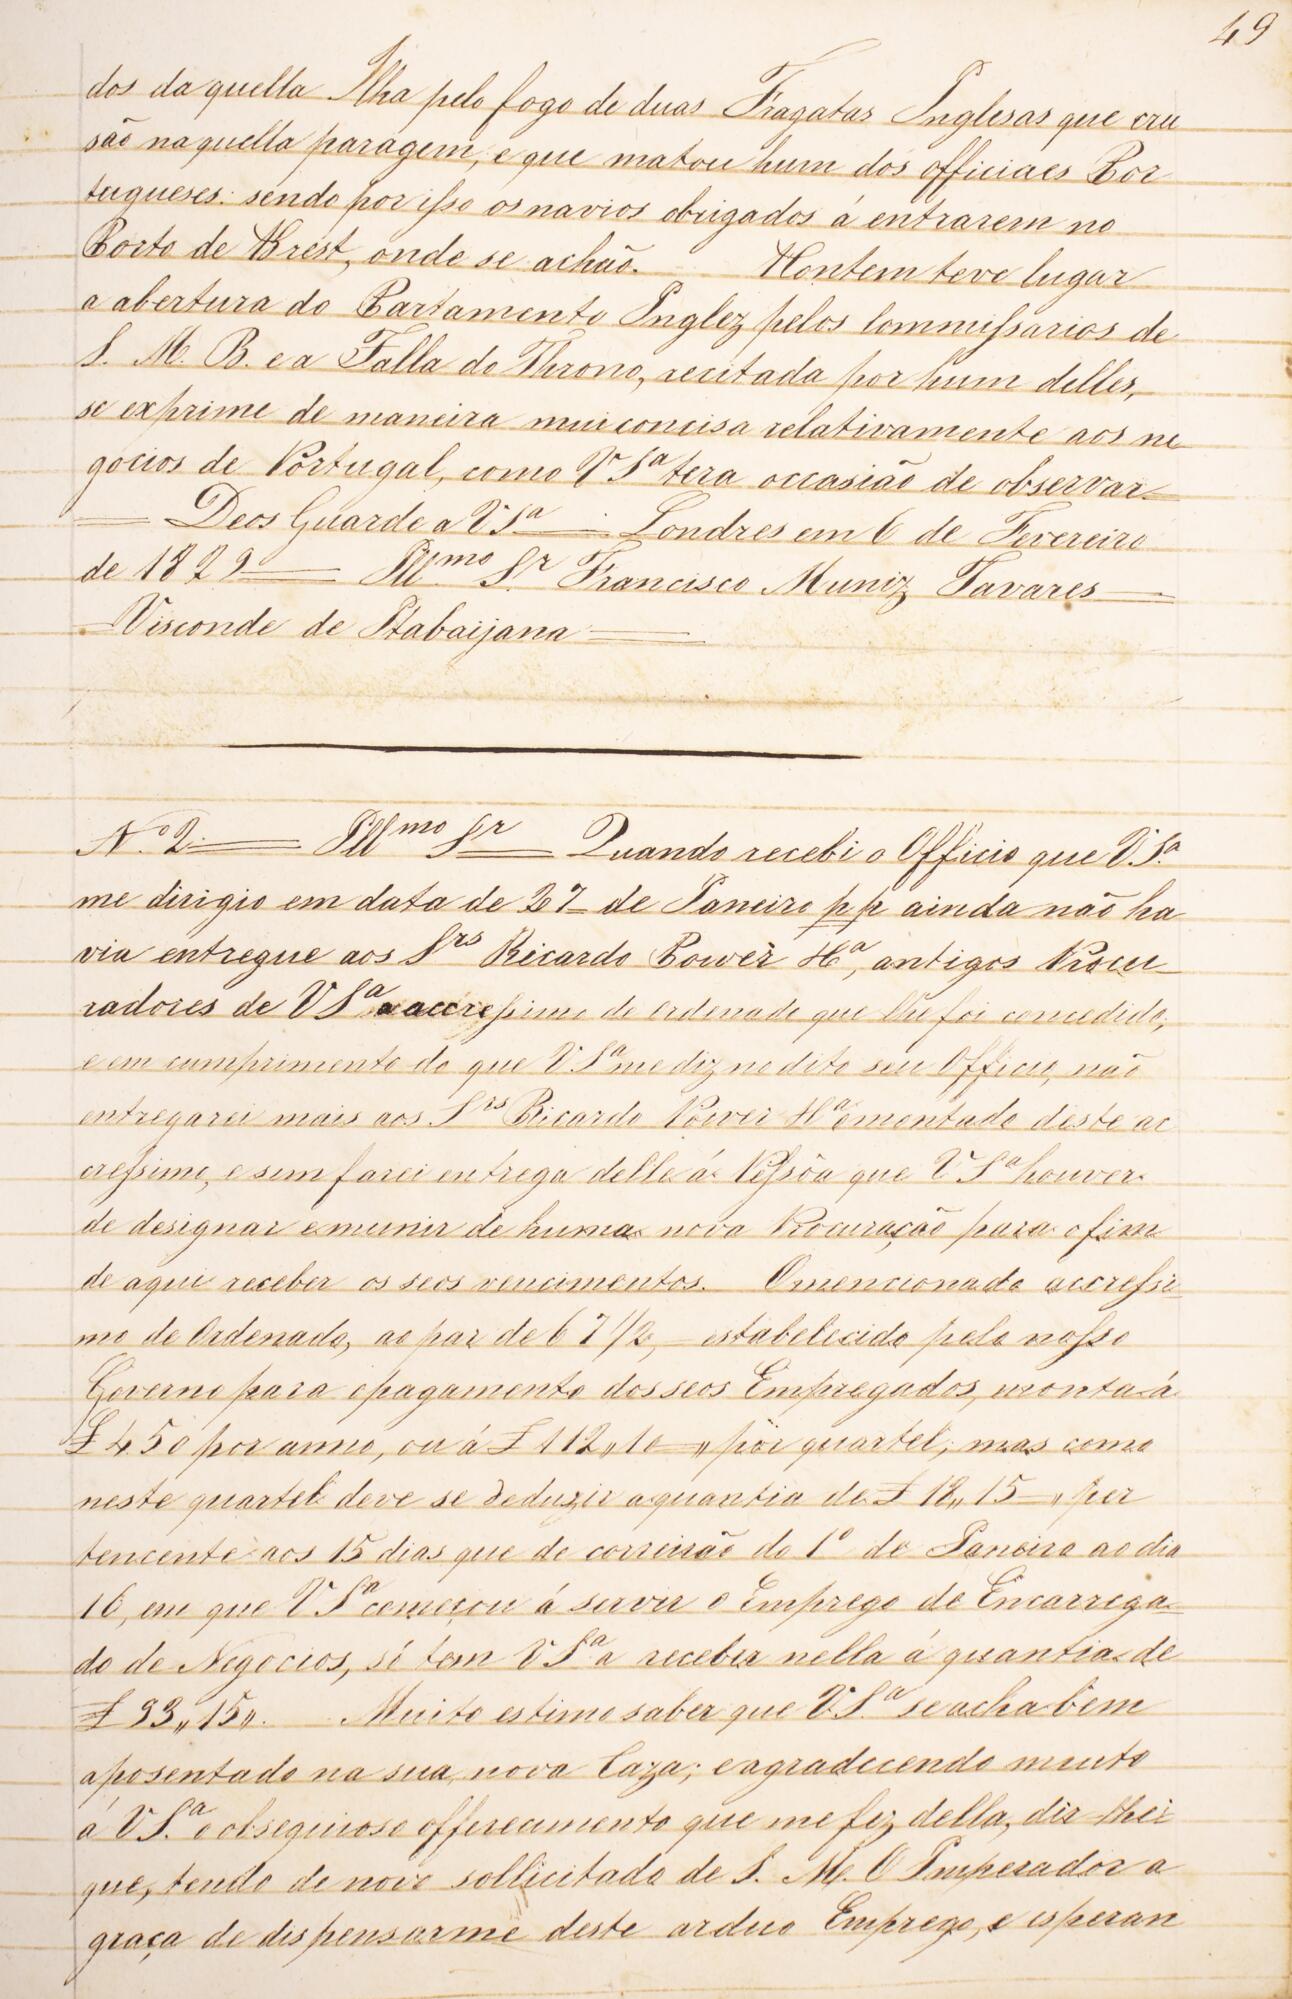 49
dos daquella Ilha pelo fogo de duas Fragatas Inglesas que cru
são naquella paragem, e que matou hum dos officiaes Por
tugueses: sendo por isso os navios obrigados á entrarem no
Porto de Brest, onde se achão. Hontem teve lugar
a abertura do Parlamento Inglez pelos Commissarios de
S. M. B. e a Falla do Throno, recitada por hum delles,
se exprime de maneira mui concisa relativamente aos ne
gocios de Portugal, como V Sª tera occasião de observar
Deos Guarde a V Sª Londres em 6 de Fevereiro
de 1829 Illmo Sr Francisco Muniz Tavares
Visconde de Itabaijana
Nº 2 Illmo Sr Quando recebi o Officio que V Sª
me dirigio em data de 27 de Janeiro pp ainda não ha
via entregue aos Srs Ricardo Power Hª, antigos Procu
radores de V Sª o accressimo de ordenado que lhe foi concedido,
e em cumprimento do que V Sª me diz no dito seu Officio, não
entregarei mais aos Srs Ricardo Power Hª o montado deste ac
cressimo, e sim farei entrega delle á Pessôa que V Sª houver
de designar e munir de huma nova Procuração para o fim
de aqui receber os seos vencimentos. O mencionado accressi
mo de Ordenado, ao par de 67 1/2, estabelecido pelo nosso
Governo para o pagamento dos seos Empregados, monta á
£ 450 por anno, ou á £ 112,,10 ,, por quartel; mas como
neste quartel deve se deduzir a quantia de £ 18,,15 ,, per
tencente aos 15 dias que de correirão do 1º de Janeiro ao dia
16, em que V Sª começou á servir o Emprego de Encarrega
do de Negocios, só tem V Sª a receber nella á quantia de
£ 93,,15,,. Muito estimo saber que V. Sª se acha bem
aposentado na sua nova Caza; e agradecendo muito
á V Sª o obsequioso offerecimento que me fez della, dir-lhei
que, tendo de novo sollicitado de S. M. O Imperador a
graça de dispensarme deste arduo Emprego, e esperan